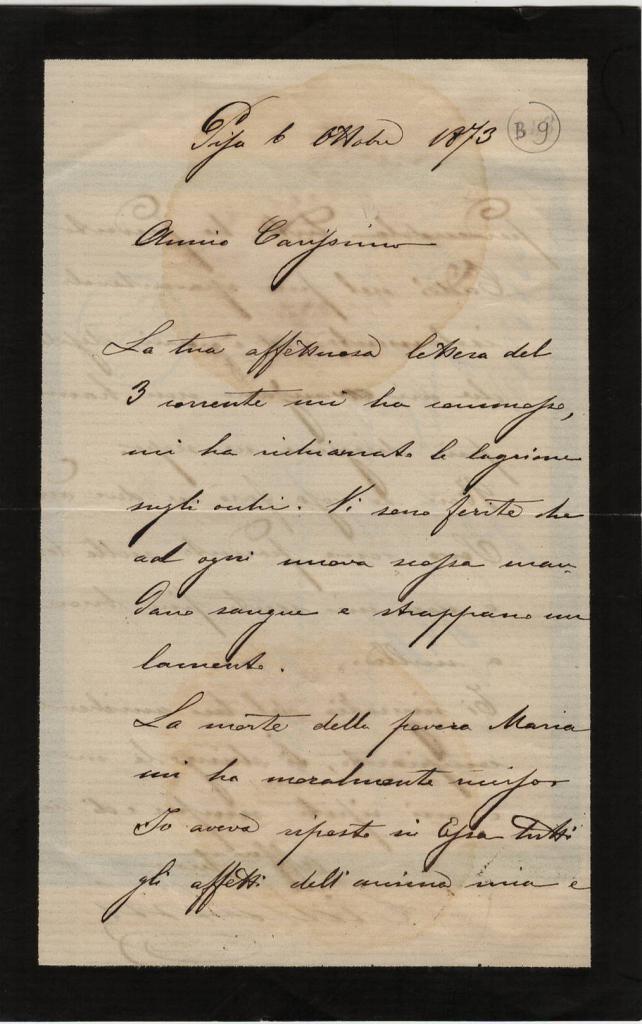 Pisa 6 Ottobre 1873
B 9
Amico Carissimo
La tua affettuosa lettera del
3 corrente mi ha commosso,
mi ha richiamato le lagrime
sugli occhi. Vi sono ferite che
ad ogni nuova scossa man-
dano sangue e strappano un
lamento.
La morte della povera Maria
mi ha moralmente ucciso
Io aveva riposto in Essa tutti
gli affetti dell'anima mia e